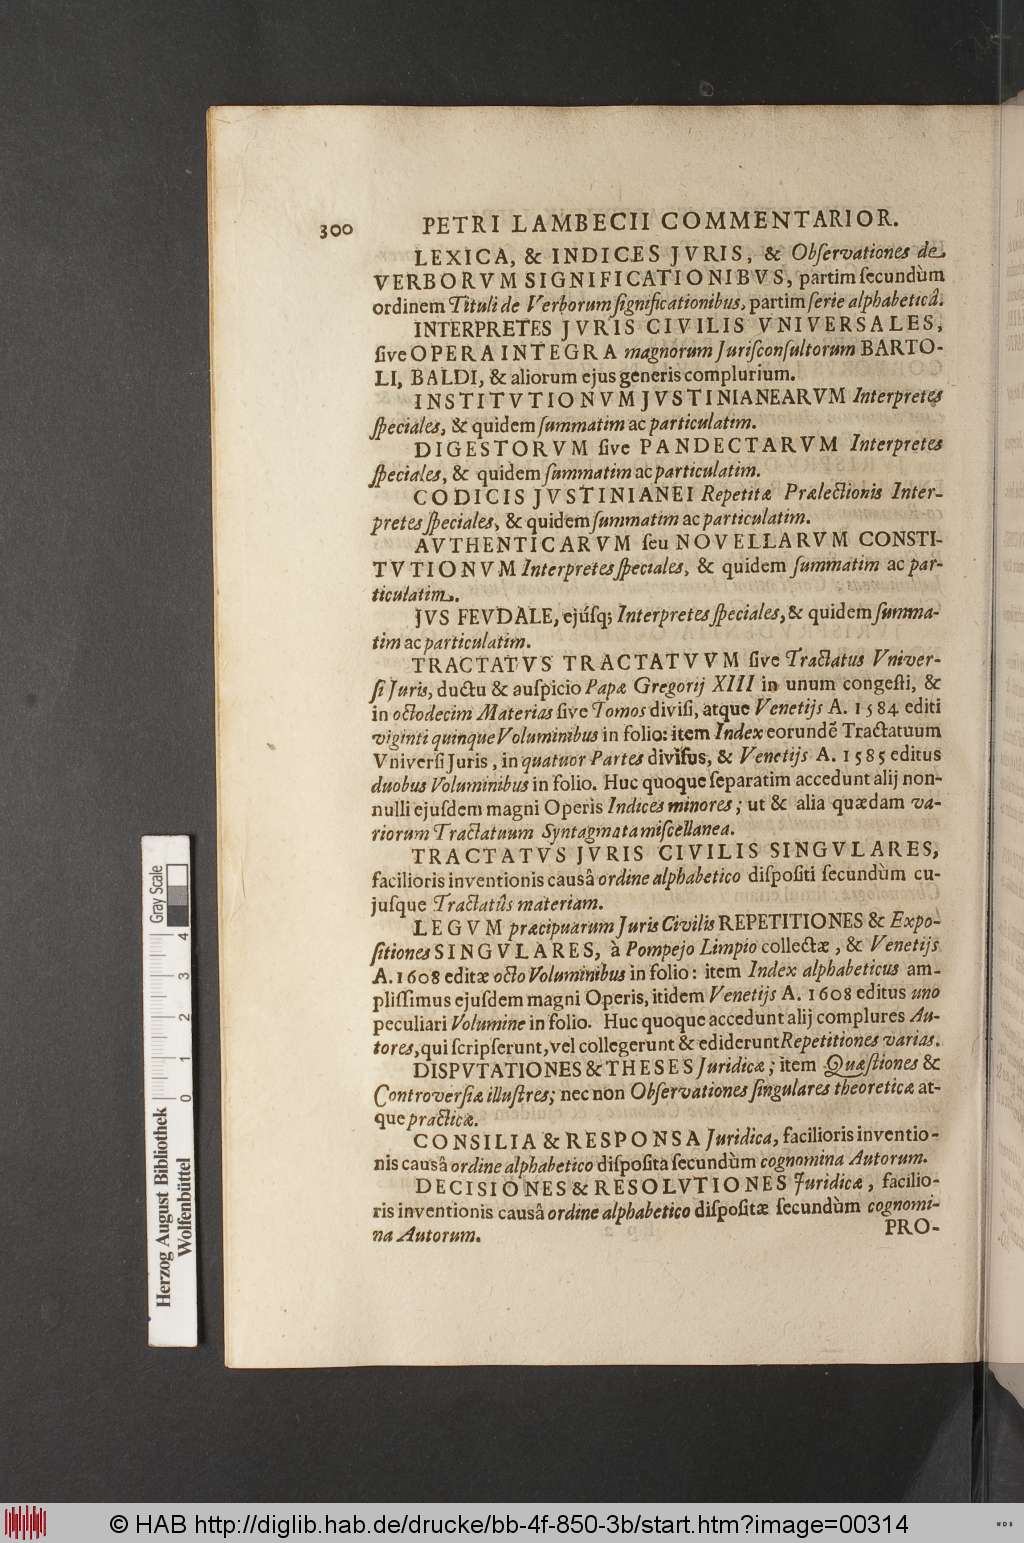 300 PETRI LAMBECII COMMENTARIOR.
LEXICA, & INDICES JVRIS, & Obſervationes de
VERBORVM SIGNIFICATIONIBVS, partim ſecundùm
ordinem Tituli de Verborum ſignificationibus, partim ſerie alphabeticâ.
INTERPRETES JVRIS CIVILIS VNIVERSALES,
ſive OPERA INTEGRA magnorum Juriſconſultorum BARTO-
LI, BALDI, & aliorum ejus generis complurium.
INSTITVTIONVM JVSTINIANEARVM Interpretes
ſpeciales, & quidem ſummatim ac particulatim.
DIGESTORVM ſive PANDECTARVM Interpretes
ſpeciales, & quidem ſummatim ac particulatim.
CODICIS JVSTINIANEI Repetitæ Prælectionis Inter-
pretes ſpeciales, & quidem ſummatim ac particulatim.
AVTHENTICARVM ſeu NOVELLARVM CONSTI-
TVTIONVM Interpretes ſpeciales, & quidem ſummatim ac par-
ticulatim.
JVS FEVDALE, ejúſq; Interpretes ſpeciales, & quidem ſumma-
tim ac particulatim.
TRACTATVS TRACTATVVM ſive Tractatus Vniver-
ſi Juris, ductu & auſpicio Papæ Gregorij XIII in unum congeſti, &
in octodecim Materias ſive Tomos diviſi, atque Venetijs A. 1584 editi
viginti quinque Voluminibus in folio: item Index eorundē Tractatuum
Vniverſi Juris, in quatuor Partes diviſus, & Venetijs A. 1585 editus
duobus Voluminibus in folio. Huc quoque ſeparatim accedunt alij non-
nulli ejuſdem magni Operis Indices minores; ut & alia quædam va-
riorum Tractatuum Syntagmata miſcellanea.
TRACTATVS JVRIS CIVILIS SINGVLARES,
facilioris inventionis causâ ordine alphabetico diſpoſiti ſecundùm cu-
juſque Tractatûs materiam.
LEGVM præcipuarum Juris Civilis REPETITIONES & Expo-
ſitiones SINGVLARES, à Pompejo Limpio collectæ, & Venetijs
A. 1608 editæ octo Voluminibus in folio: item Index alphabeticus am-
pliſſimus ejuſdem magni Operis, itidem Venetijs A. 1608 editus uno
peculiari Volumine in folio. Huc quoque accedunt alij complures Au-
tores, qui ſcripſerunt, vel collegerunt & ediderunt Repetitiones varias.
DISPVTATIONES & THESES Juridicæ; item Quæſtiones &
Controverſiæ illuſtres; nec non Obſervationes ſingulares theoreticæ at-
que practicæ.
CONSILIA & RESPONSA Juridica, facilioris inventio-
nis causâ ordine alphabetico diſpoſita ſecundùm cognomina Autorum.
DECISIONES & RESOLVTIONES Juridicæ, facilio-
ris inventionis causâ ordine alphabetico diſpoſitæ ſecundùm cognomi-
na Autorum.
PRO-
Herzog August Bibliothek
Wolfenbüttel
0 1 2 3 4
Gray Scale
© HAB http://diglib.hab.de/drucke/bb-4f-850-3b/start.htm?image=00314
WDB